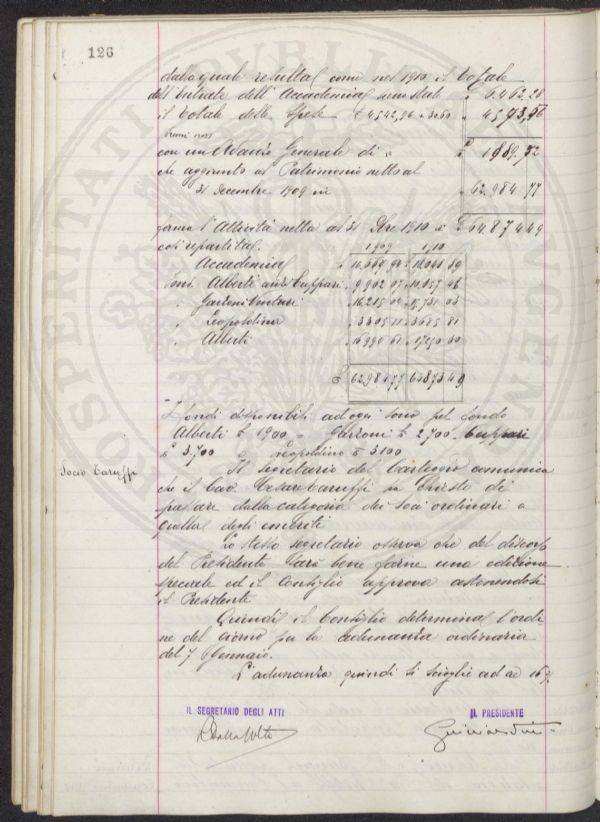 126
dalla quale risulta come nel 1910 il Totale
dell'Entrate dell'Accademia sono state £ 6.462.28
il Totale delle Spese £ 4542,96 + 30.60 " 4573,56
con un Avanzo Generale di " £ 1889,32
che aggiunto al Patrimonio netto al
31 Decembre 1909 in " 62.984 77
forma l'Attività netta al 31 Dbre 1910 in £ 64874 49
così repartita.
1909 1910
Accademia
Fondi Alberti anzi Cuppari
" Garzoni Venturi
" Leopoldino
" Alberti
£ 62.984 77 64873 49
I fondi disponibili ad oggi sono pel fondo
Alberti £ 1900 - Garzoni £ 2.700. Cuppari
£ 3,700 e Leopoldino £ 3100
Socio Caruffi
Il segretario del Carteggio comunica
che il Cav. Cesare Caruffi ha chiesto di
passare dalla categoria dei Soci ordinari a
quella degli emeriti
Lo stesso segretario osserva che del discorso
del Presidente sarà bene farne una edizione
speciale ed il Consiglio approva astenendosi
il Presidente
Quindi il Consiglio determina l'ordi
ne del giorno per la adunanza ordinaria
del 7 Gennaio.
L'adunanza quindi si scioglie ad ore 16½
IL SEGRETARIO DEGLI ATTI IL PRESIDENTE
Guicciardini